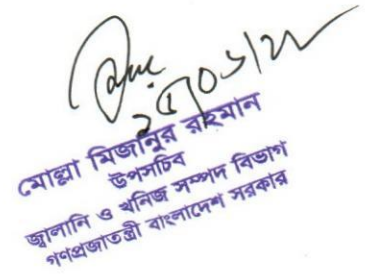 মোল্লা মিজানুর রহমান
উপসচিব
জ্বালানি ও খনিজ সম্পদ বিভাগ
গণপ্রজাতন্ত্রী বাংলাদেশ সরকার